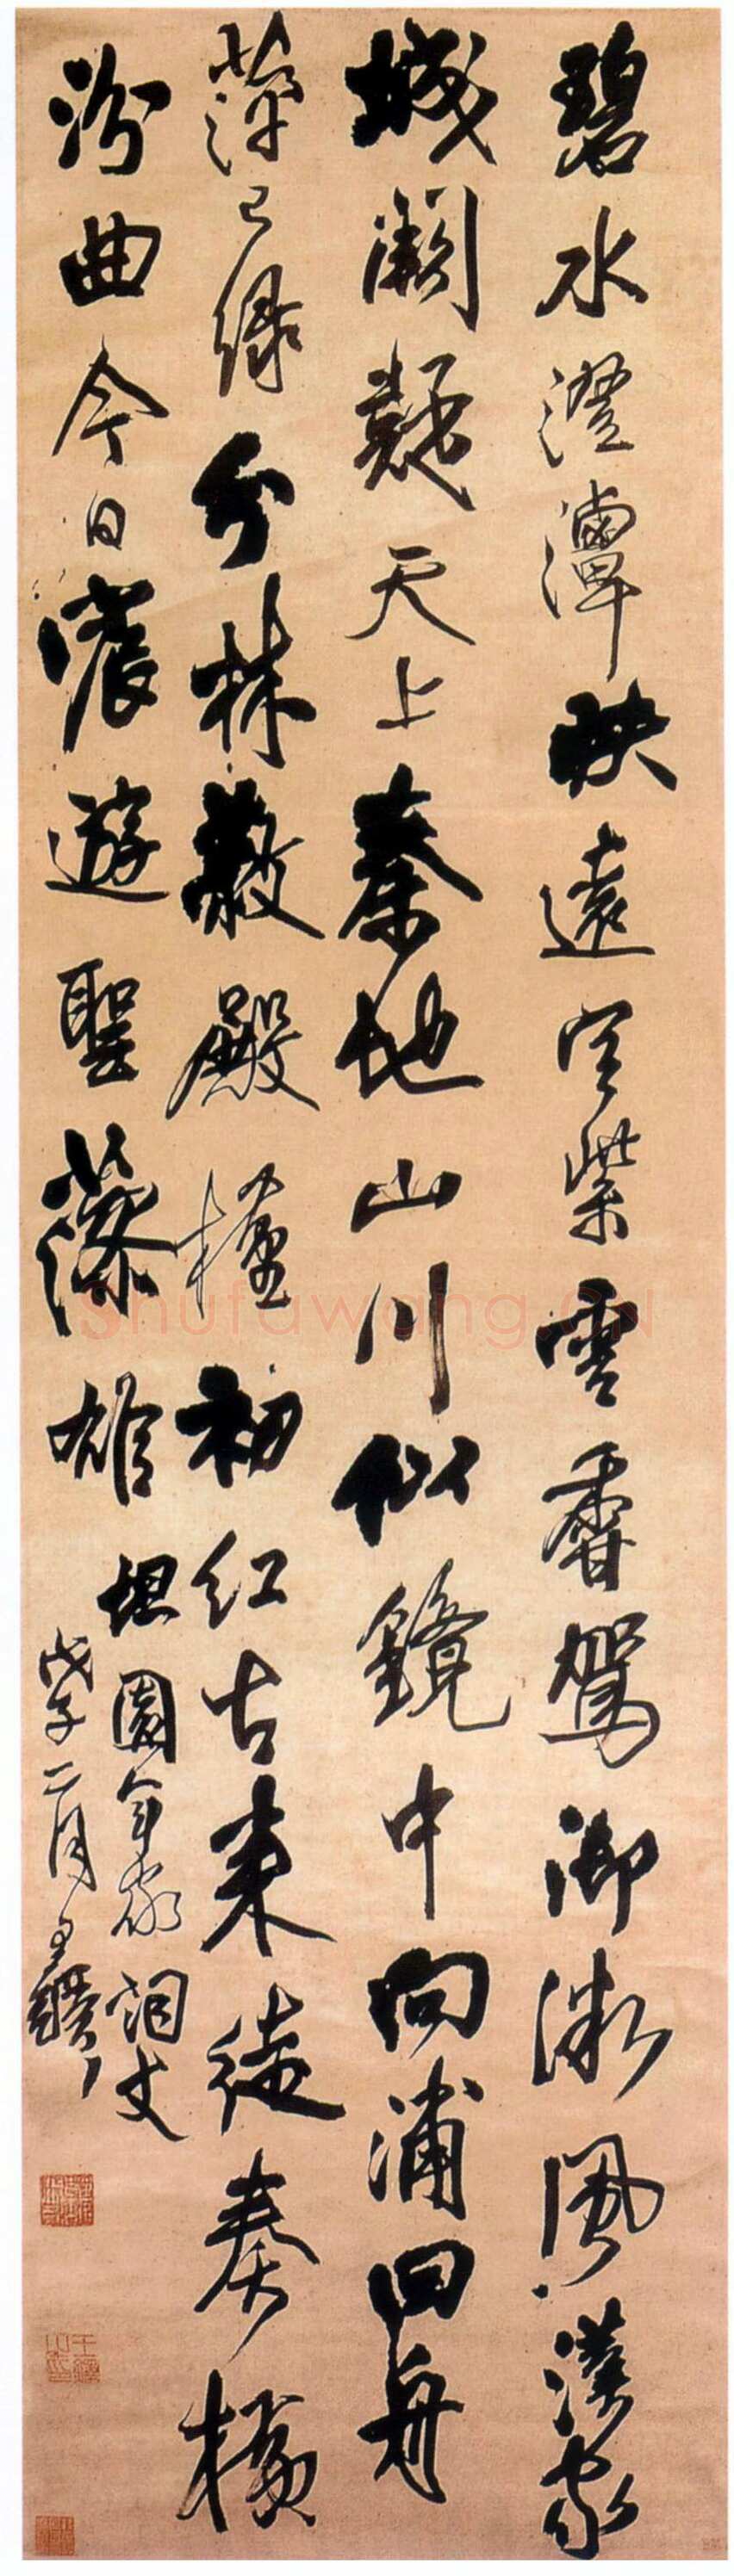 碧水澄潭映遠空紫雲香駕御微風漢家
城闕疑天上秦地山川似鏡中向浦回舟
萍已綠分林蔽殿槿初紅古來徒奏橫
汾曲今日宸遊聖藻雄
坦園年家詞丈
戊子二月王鐸
Shufawang.CN